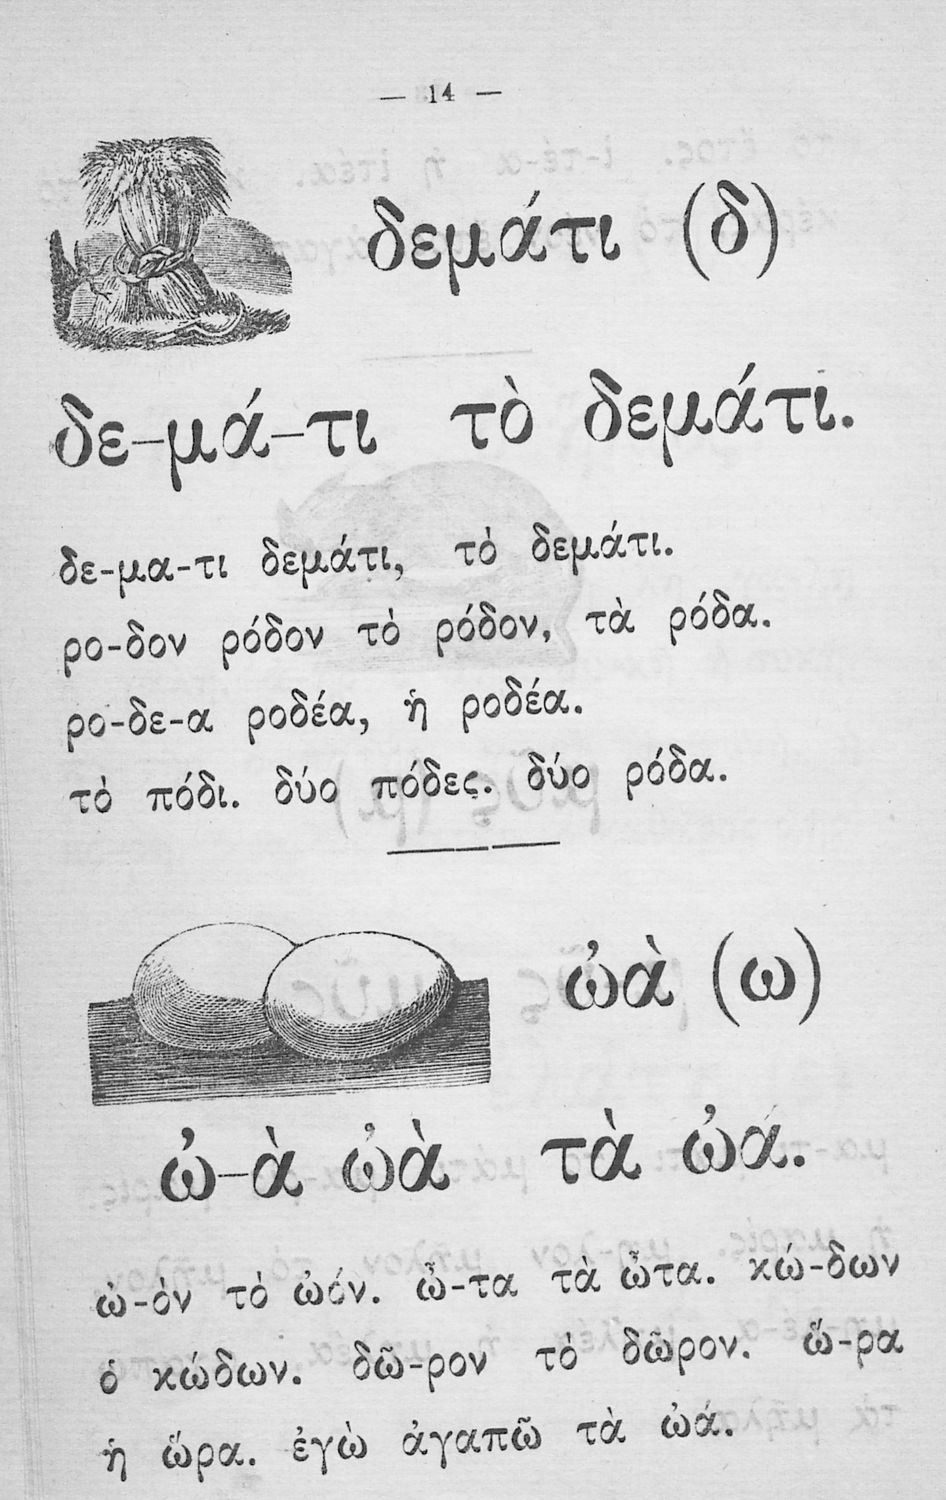 — 14 —
δεμάτι (δ)
δε-μά-τι τὸ δεμάτι.
δε-μα-τι δεμάτι, τὸ δεμάτι.
ρο-δον ρόδον τὸ ρόδον, τὰ ρόδα.
ρο-δε-α ροδέα, ἡ ροδέα.
τὸ πόδι. δύο πόδες. δύο ρόδα.
ὠὰ (ω)
ὠ-ὰ ὠὰ τὰ ὠά.
ὠ-ὸν τὸ ὠόν. ὦ-τα τὰ ὦτα. κώ-δων
ὁ κώδων. δῶ-ρον τὸ δῶρον. ὥ-ρα
ἡ ὥρα. ἐγὼ ἀγαπῶ τὰ ὠά.